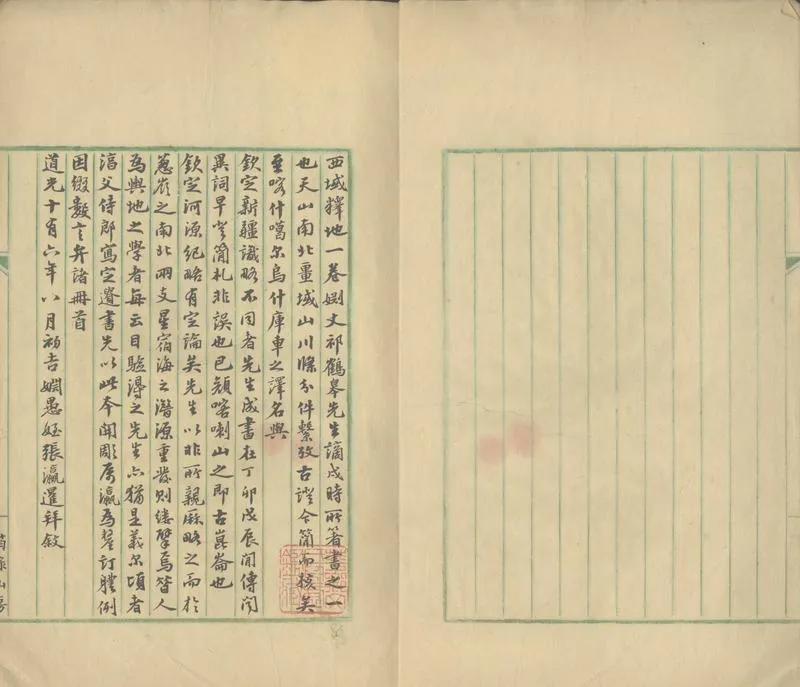 西域釋地一卷姻丈祁鶴皋先生謫戍時所箸書之一
也天山南北畺域山川條分件繫攷古證今簡而核矣
至喀什噶尔烏什庫車之譯名與
欽定新疆識略不同者先生成書在丁卯戊辰間傳聞
異詞早登簡札非誤也巴顏喀喇山之即古崑崙也
欽定河源紀略有定論矣先生以非所親厤略之而於
蔥嶺之南北兩支星宿海之潛源重發則縷擘焉昔人
為輿地之學者每云目驗得之先生亦猶是義尔頃者
淳父侍郎寫定遺書先以此本開彫屬瀛為釐訂體例
因綴數言弁諸冊首
道光十有六年八月初吉姻愚姪張瀛暹拜敘